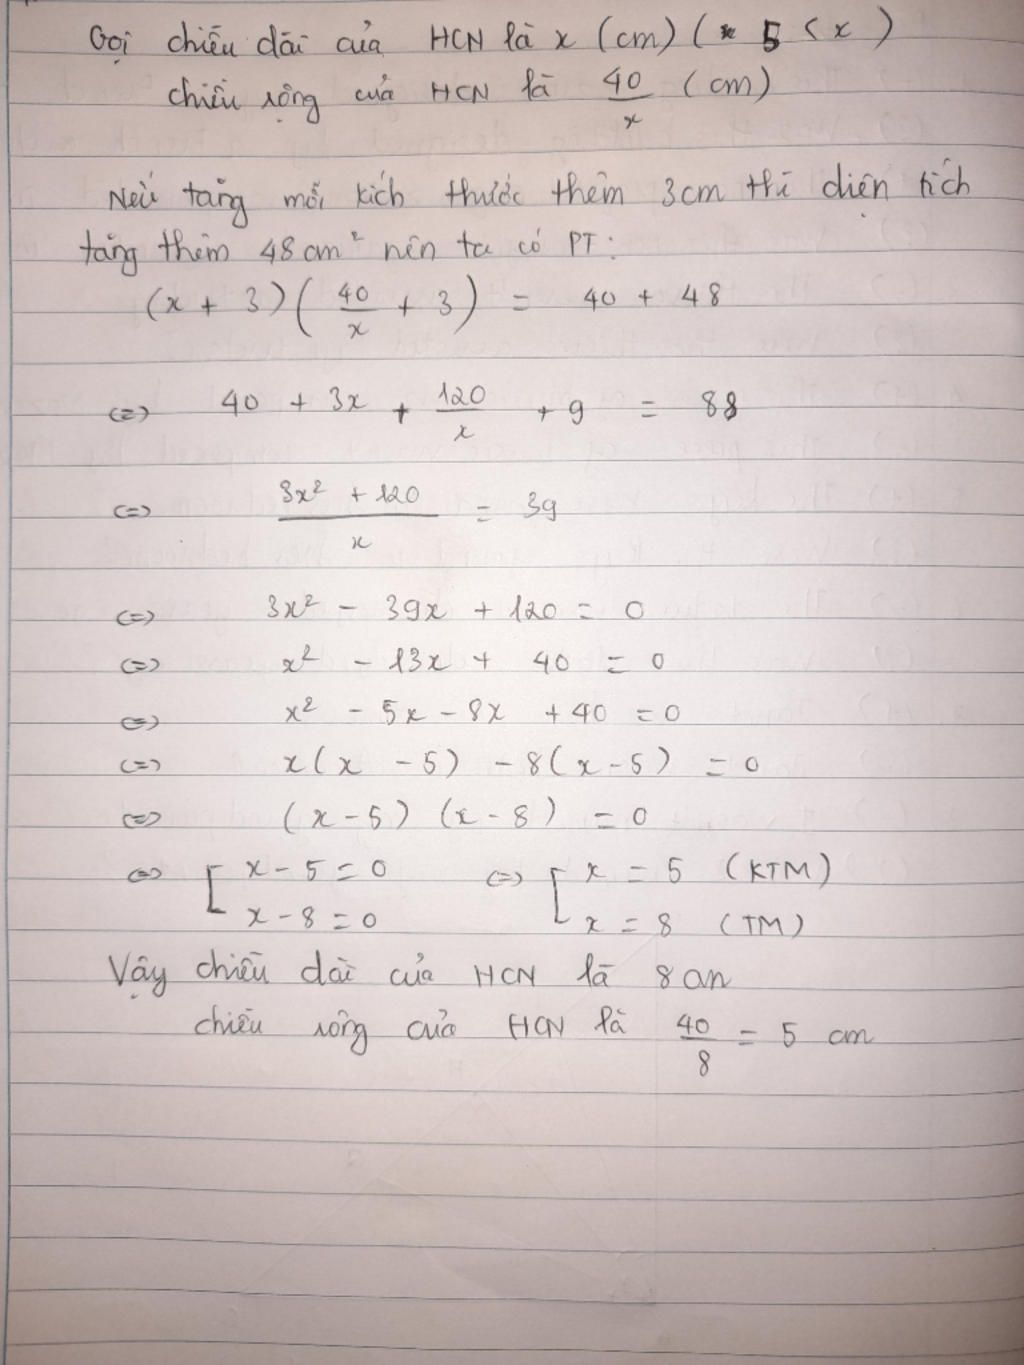 Gọi chiều dài của HCN là x (cm) ( 5 < x )
chiều rộng của HCN là 40/x (cm)
Nếu tăng mỗi kích thước thêm 3cm thì diện tích
tăng thêm 48cm² nên ta có PT:
(x + 3)(40/x + 3) = 40 + 48
<=> 40 + 3x + 120/x + 9 = 88
<=> (3x² + 120)/x = 39
<=> 3x² - 39x + 120 = 0
<=> x² - 13x + 40 = 0
<=> x² - 5x - 8x + 40 = 0
<=> x(x - 5) - 8(x - 5) = 0
<=> (x - 5) (x - 8) = 0
<=> [ x - 5 = 0 <=> [ x = 5 (KTM)
x - 8 = 0 x = 8 (TM)
Vậy chiều dài của HCN là 8cm
chiều rộng của HCN là 40/8 = 5 cm